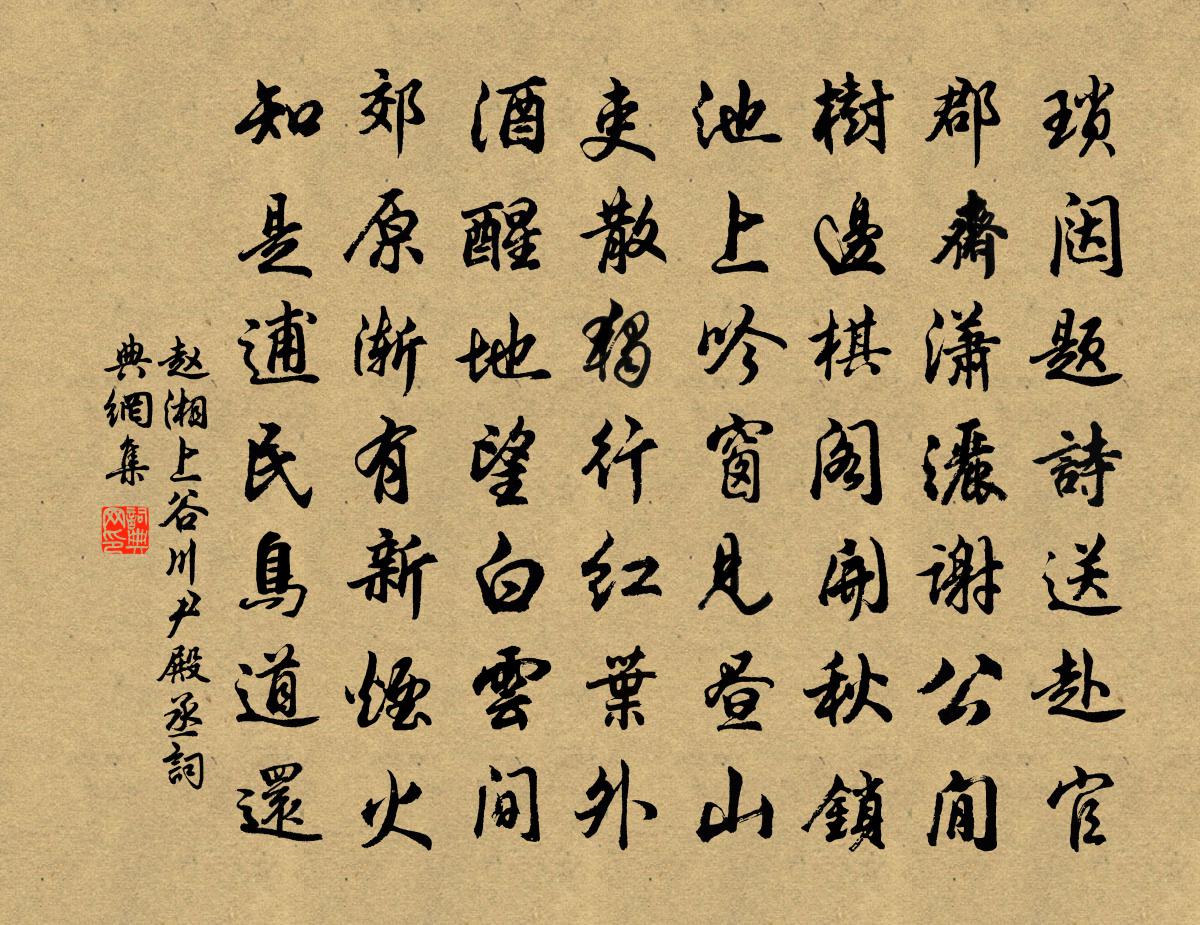 瑣闼題詩送赴官
郡齋瀟灑謝公閒
樹邊棋閣開秋鎖
池上吟窗見昼山
吏散獨行紅葉外
酒醒地望白雲間
郊原漸有新煙火
知是逋民鳥道還
赵湘上谷川尹殿丞詞
典網集
詞典
网印